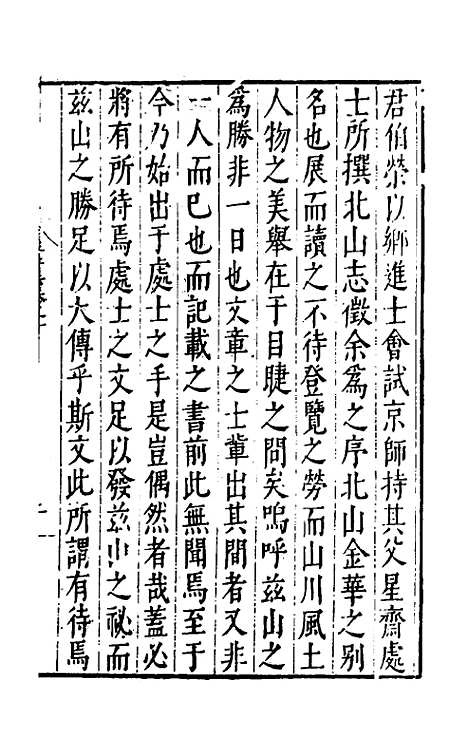 君伯榮以鄉進士會試京師持其父星齋處
士所撰北山志徵余爲之序北山金華之别
名也展而讀之不待登覽之勞而山川風土
人物之美舉在于目睫之間矣嗚呼兹山之
爲勝非一日也文章之士軰出其間者又非
一人而巳也而記載之書前此無聞焉至于
今乃始出于處士之手是豈偶然者哉蓋必
將有所待焉處士之文足以發兹山之祕而
兹山之勝足以大傳乎斯文此所謂有待焉